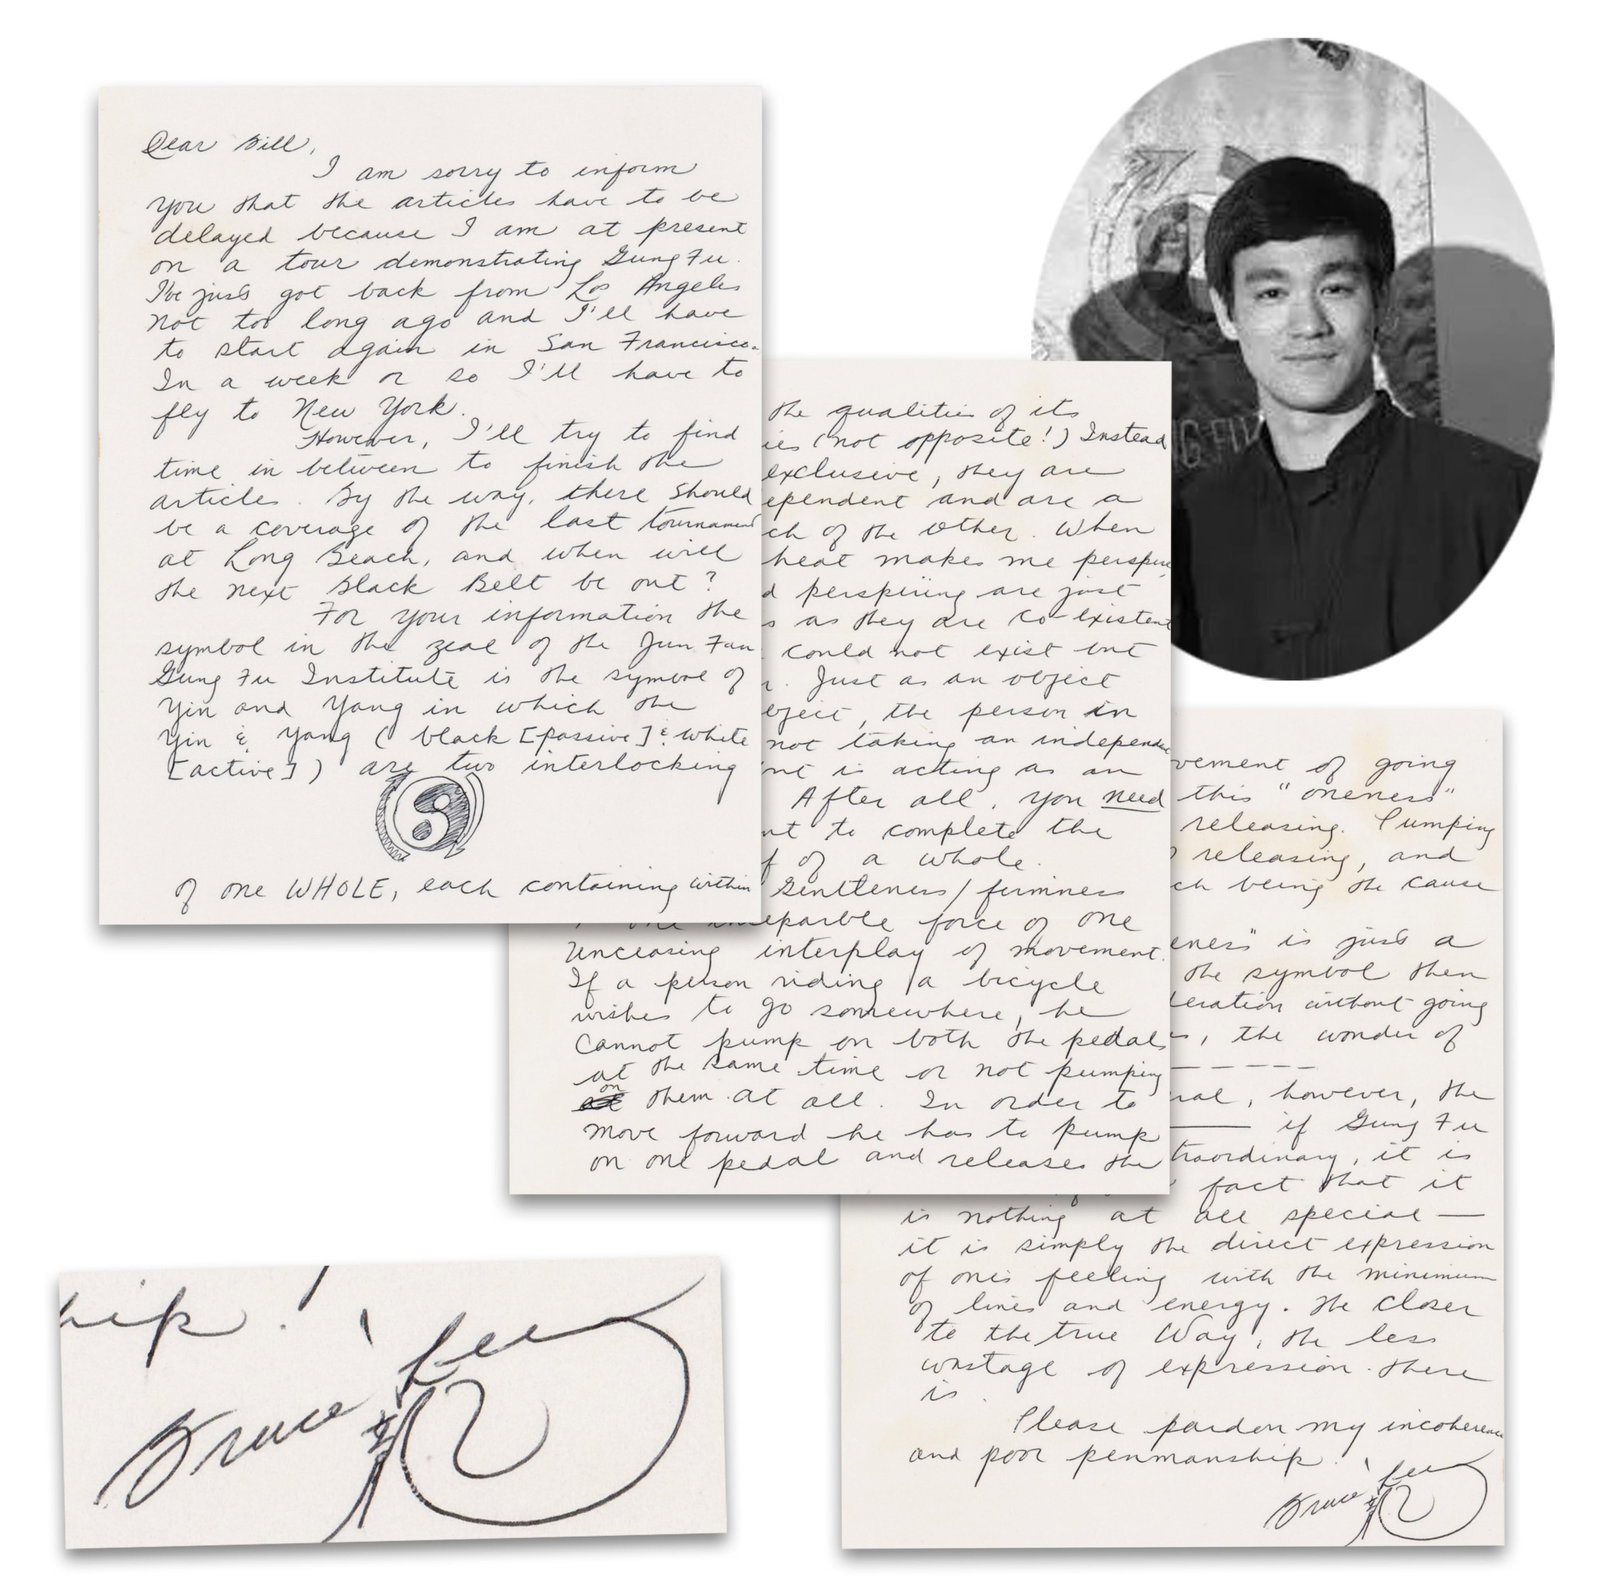 Dear Bill,
I am sorry to inform
you that the articles have to be
delayed because I am at present
on a tour demonstrating Gung Fu.
I've just got back from Los Angeles
not too long ago and I'll have
to start again in San Francisco.
In a week or so I'll have to
fly to New York.
However, I'll try to find
time in between to finish the
articles. By the way, there should
be a coverage of the last tournament
at Long Beach, and when will
the next Black Belt be out?
For your information the
symbol in the zeal of the Jun Fan
Gung Fu Institute is the symbol of
Yin and Yang in which the
Yin & Yang ( black [passive] & white
[active] ) are two interlocking
of one WHOLE, each containing within
the qualities of its
ies (not opposite!) Instead
exclusive, they are
ependent and are a
ch of the other. When
heat makes me perspire
d perspiring are just
s as they are co-existent
could not exist but
r. Just as an object
bject, the person in
not taking an independent
nt is acting as an
After all, you need
nt to complete the
f of a whole.
Gentleness/firmness
one inseparble force of one
unceasing interplay of movement.
If a person riding a bicycle
wishes to go somewhere, he
cannot pump on both the pedals
at the same time or not pumping
on
them at all. In order to
move forward he has to pump
on one pedal and releases the
vement of going
this "oneness"
releasing. Pumping
releasing, and
ch being the cause
eness" is just a
the symbol then
eration without going
s, the wonder of
- - - - - -
ral, however, the
— if Gung Fu
traordinary, it is
fact that it
is nothing at all special —
it is simply the direct expression
of one's feeling with the minimum
of lines and energy. The closer
to the true Way, the less
wastage of expression there
is.
Please pardon my incoherence
and poor penmanship!
Bruce Lee
hip!
Bruce Lee